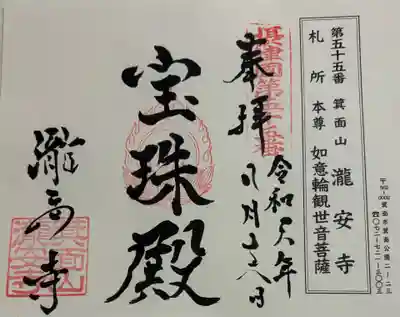 第五十五番 箕面山 瀧安寺
札所本尊 如意輪観世音菩薩
〒562-0002 箕面市箕面公園二-二三
☎〇七二-七二一-三〇〇三
奉拝
令和
宝珠殿
瀧安寺